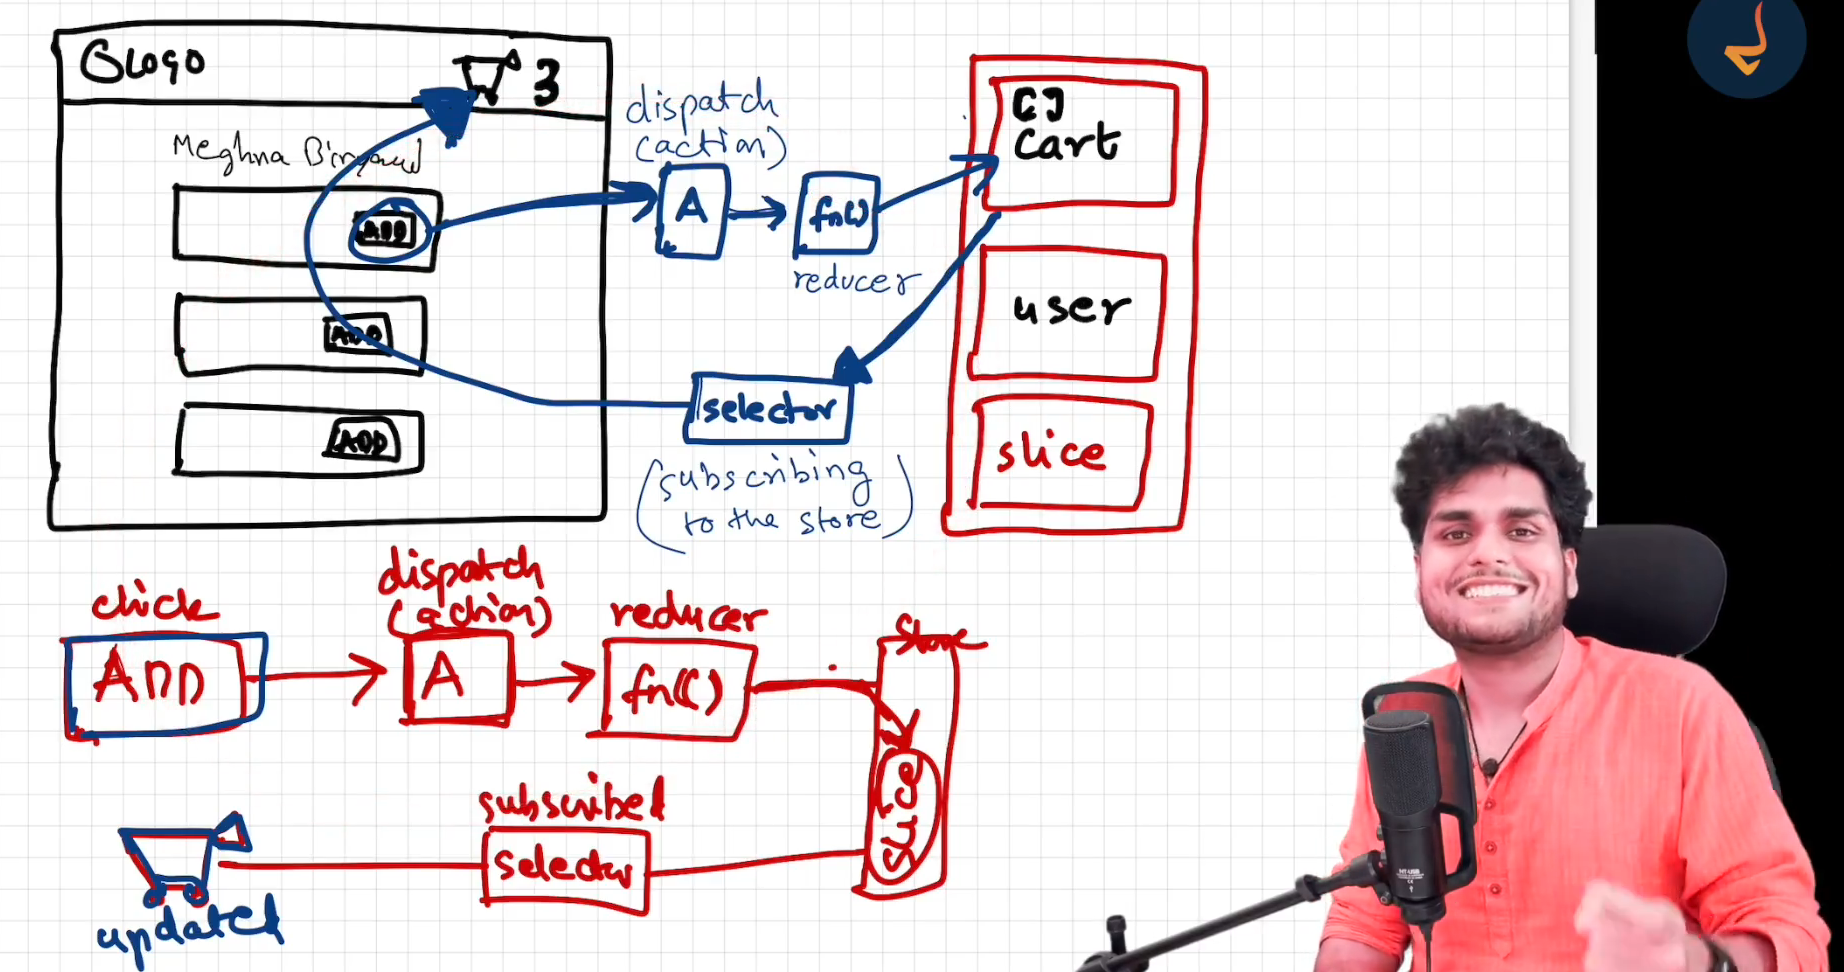 LOGO
3
Meghna Biryani
ADD
ADD
ADD
dispatch
(action)
A
fn()
reducer
selector
(subscribing
to the store)
[]
Cart
user
slice
click
ADD
dispatch
(action)
A
reducer
fn()
Store
slice
subscribed
selector
updated